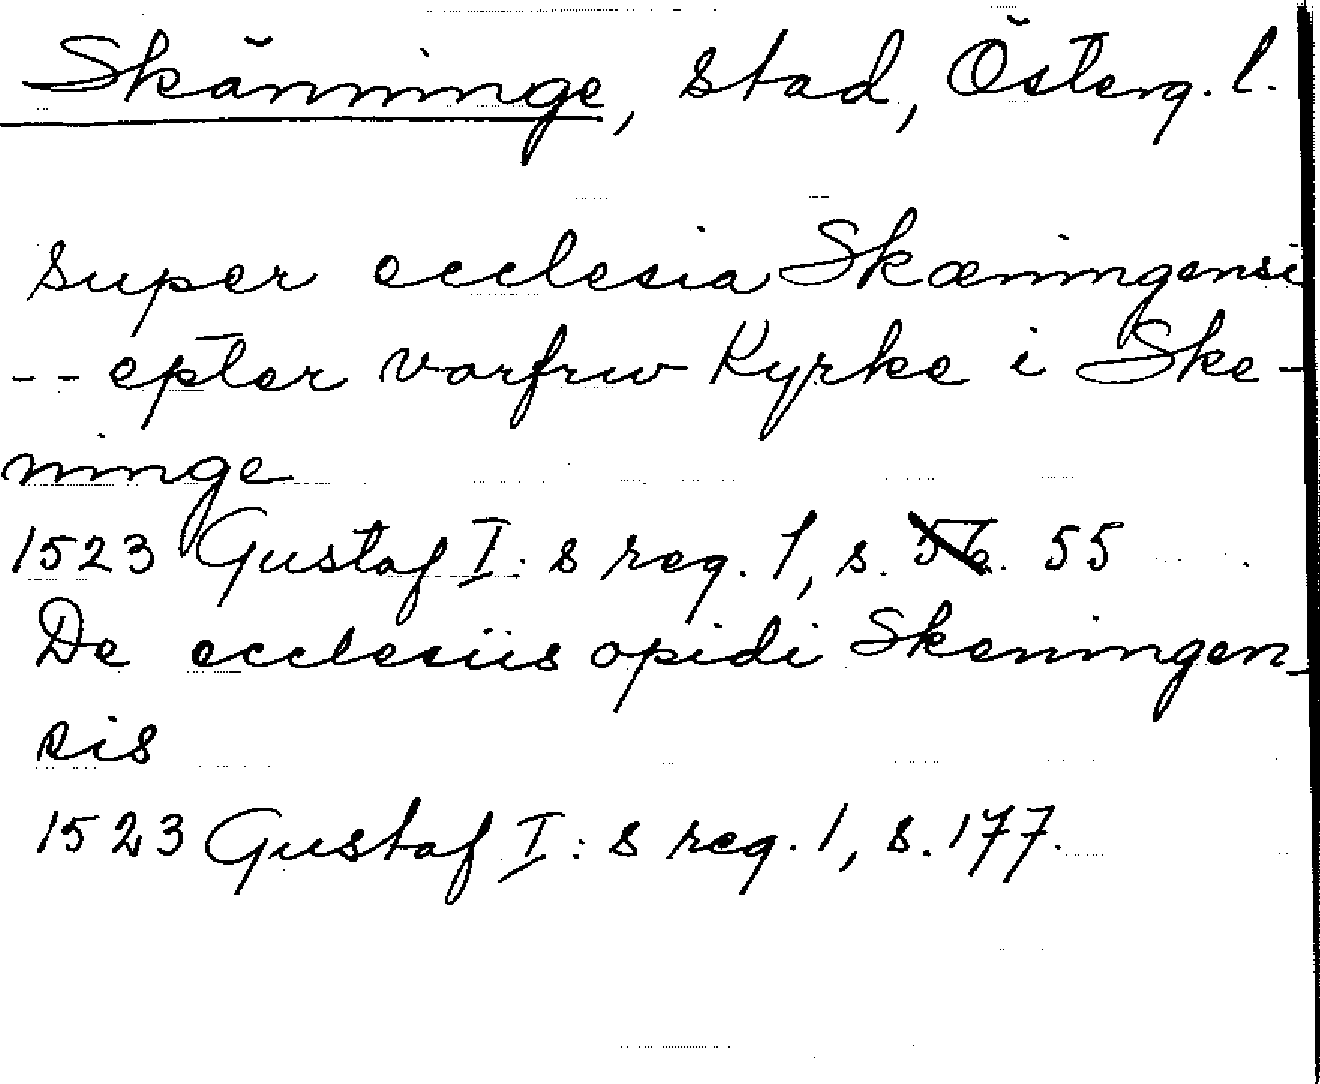 Skänninge, stad, Österg. l.
super ecclesia Skæningensi
-- epter varfrw Kyrke i Ske-
ninge
1523 Gustaf I:s reg. 1, s. 56. 55
De ecclesiis opidi Skeningen-
sis
1523 Gustaf I:s reg. 1, s. 177.